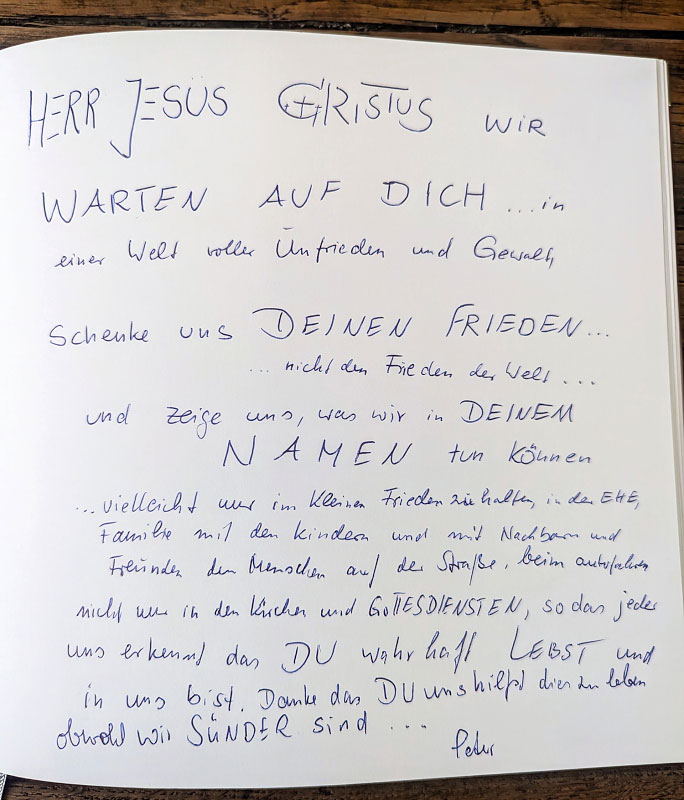 HERR JESUS CHRISTUS WIR
WARTEN AUF DICH ... in
einer Welt voller Unfrieden und Gewalt,
Schenke uns DEINEN FRIEDEN...
... nicht den Frieden der Welt ...
und zeige uns, was wir in DEINEM
NAMEN tun können
... vielleicht nur im kleinen Frieden zu halten, in der EHE,
Familie mit den Kindern und mit Nachbarn und
Freunden den Menschen auf der Straße, beim autofahren
nicht nur in den Kirchen und GOTTESDIENSTEN, so das jeder
uns erkennt das DU wahrhaft LEBST und
in uns bist. Danke das DU uns hilfst dies zu leben
obwohl wir SÜNDER sind ...
Peter